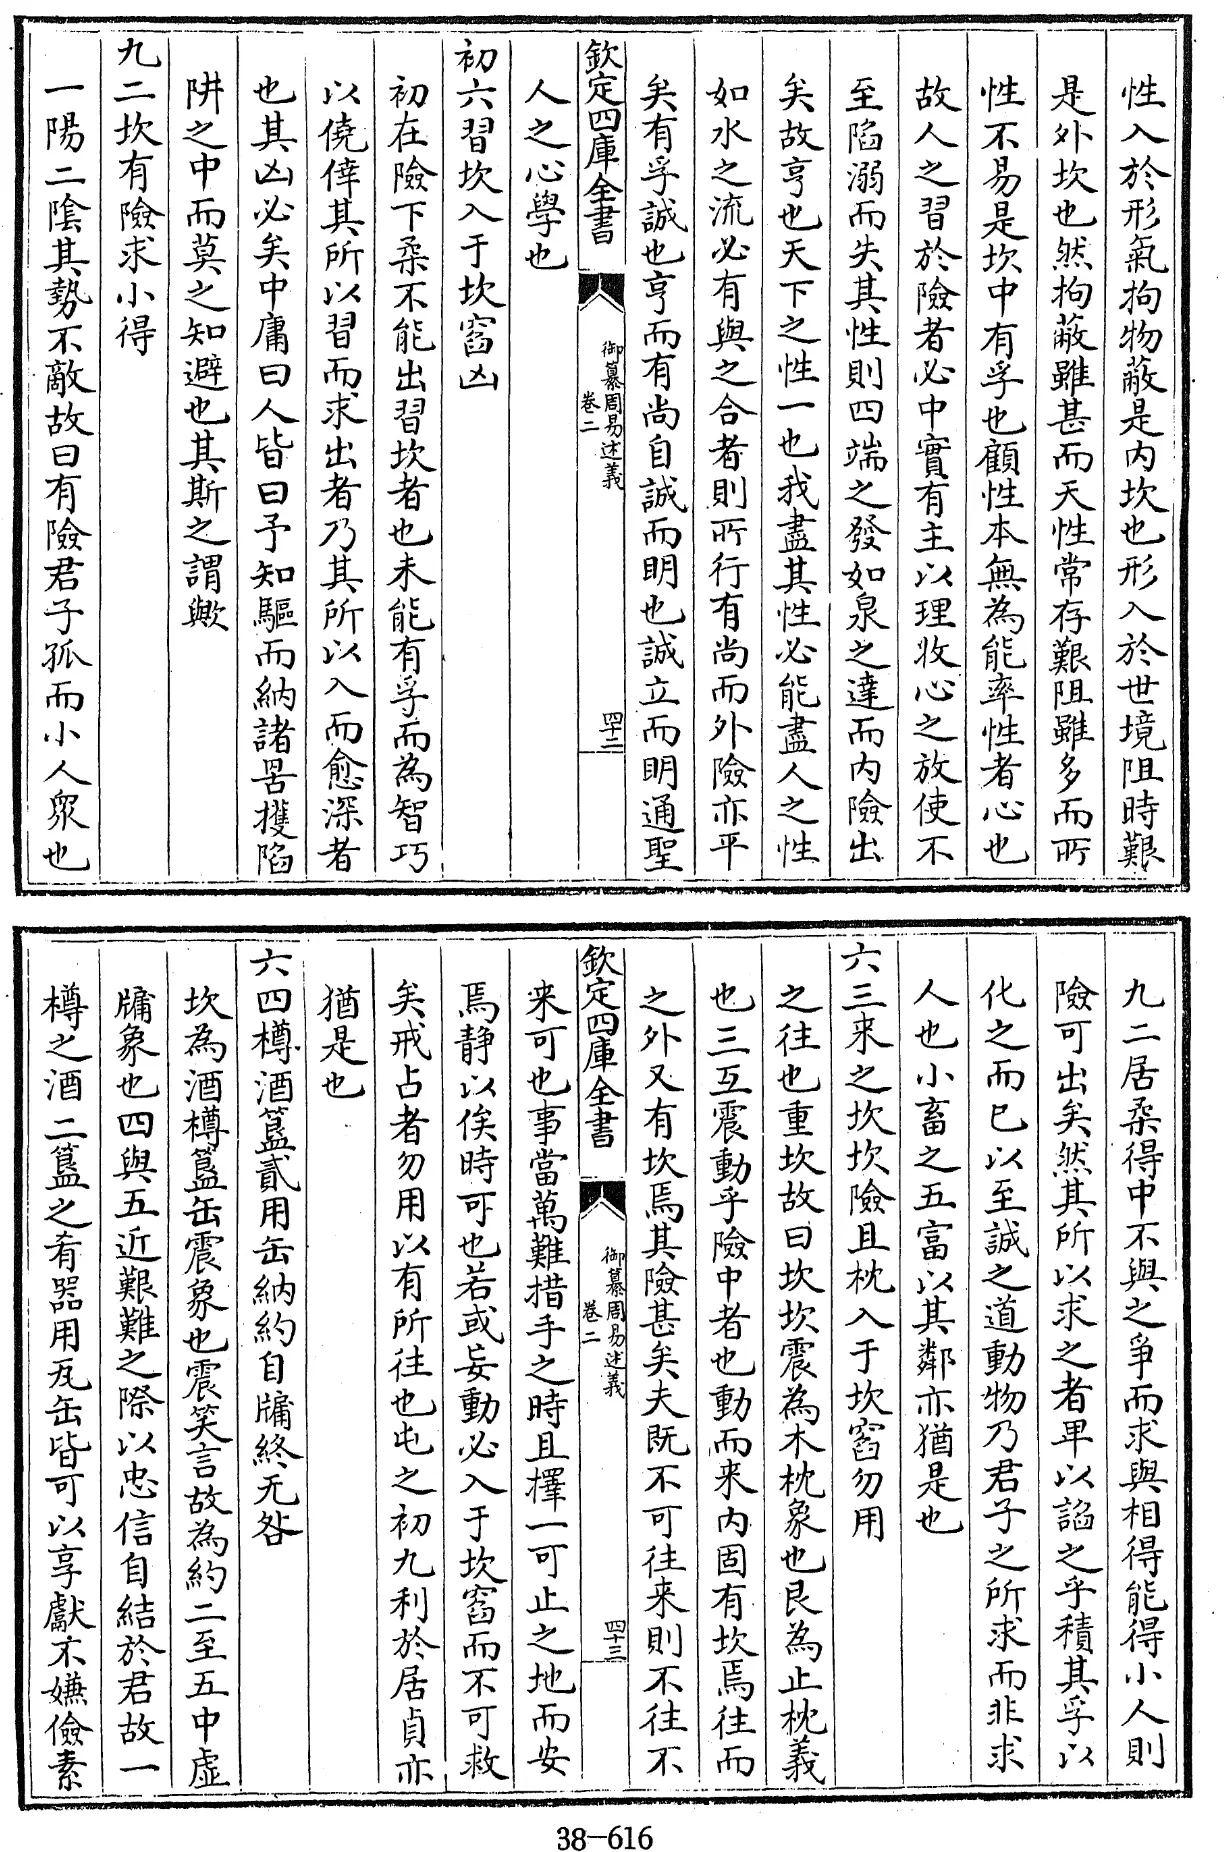 性入於形氣拘物蔽是内坎也形入於世境阻時艱
是外坎也然拘蔽雖甚而天性常存艱阻雖多而所
性不易是坎中有孚也顧性本無為能率性者心也
故人之習於險者必中實有主以理收心之放使不
至陷溺而失其性則四端之發如泉之達而内險出
矣故亨也天下之性一也我盡其性必能盡人之性
如水之流必有與之合者則所行有尚而外險亦平
矣有孚誠也亨而有尚自誠而明也誠立而明通聖
欽定四庫全書
御纂周易述義
卷二
四十二
人之心學也
初六習坎入于坎窞凶
初在險下柔不能出習坎者也未能有孚而為智巧
以僥倖其所以習而求出者乃其所以入而愈深者
也其凶必矣中庸曰人皆曰予知驅而納諸罟擭陷
阱之中而莫之知避也其斯之謂歟
九二坎有險求小得
一陽二陰其勢不敵故曰有險君子孤而小人衆也
九二居柔得中不與之爭而求與相得能得小人則
險可出矣然其所以求之者卑以諂之乎積其孚以
化之而已以至誠之道動物乃君子之所求而非求
人也小畜之五富以其鄰亦猶是也
六三来之坎坎險且枕入于坎窞勿用
之往也重坎故曰坎坎震為木枕象也艮為止枕義
也三互震動乎險中者也動而来内固有坎焉往而
之外又有坎焉其險甚矣夫既不可往来則不往不
欽定四庫全書
御纂周易述義
卷二
四十三
来可也事當萬難措手之時且擇一可止之地而安
焉静以俟時可也若或妄動必入于坎窞而不可救
矣戒占者勿用以有所往也屯之初九利於居貞亦
猶是也
六四樽酒簋貳用缶納約自牖終无咎
坎為酒樽簋缶震象也震笑言故為約二至五中虚
牖象也四與五近艱難之際以忠信自結於君故一
樽之酒二簋之肴器用瓦缶皆可以享獻不嫌儉素
38-616